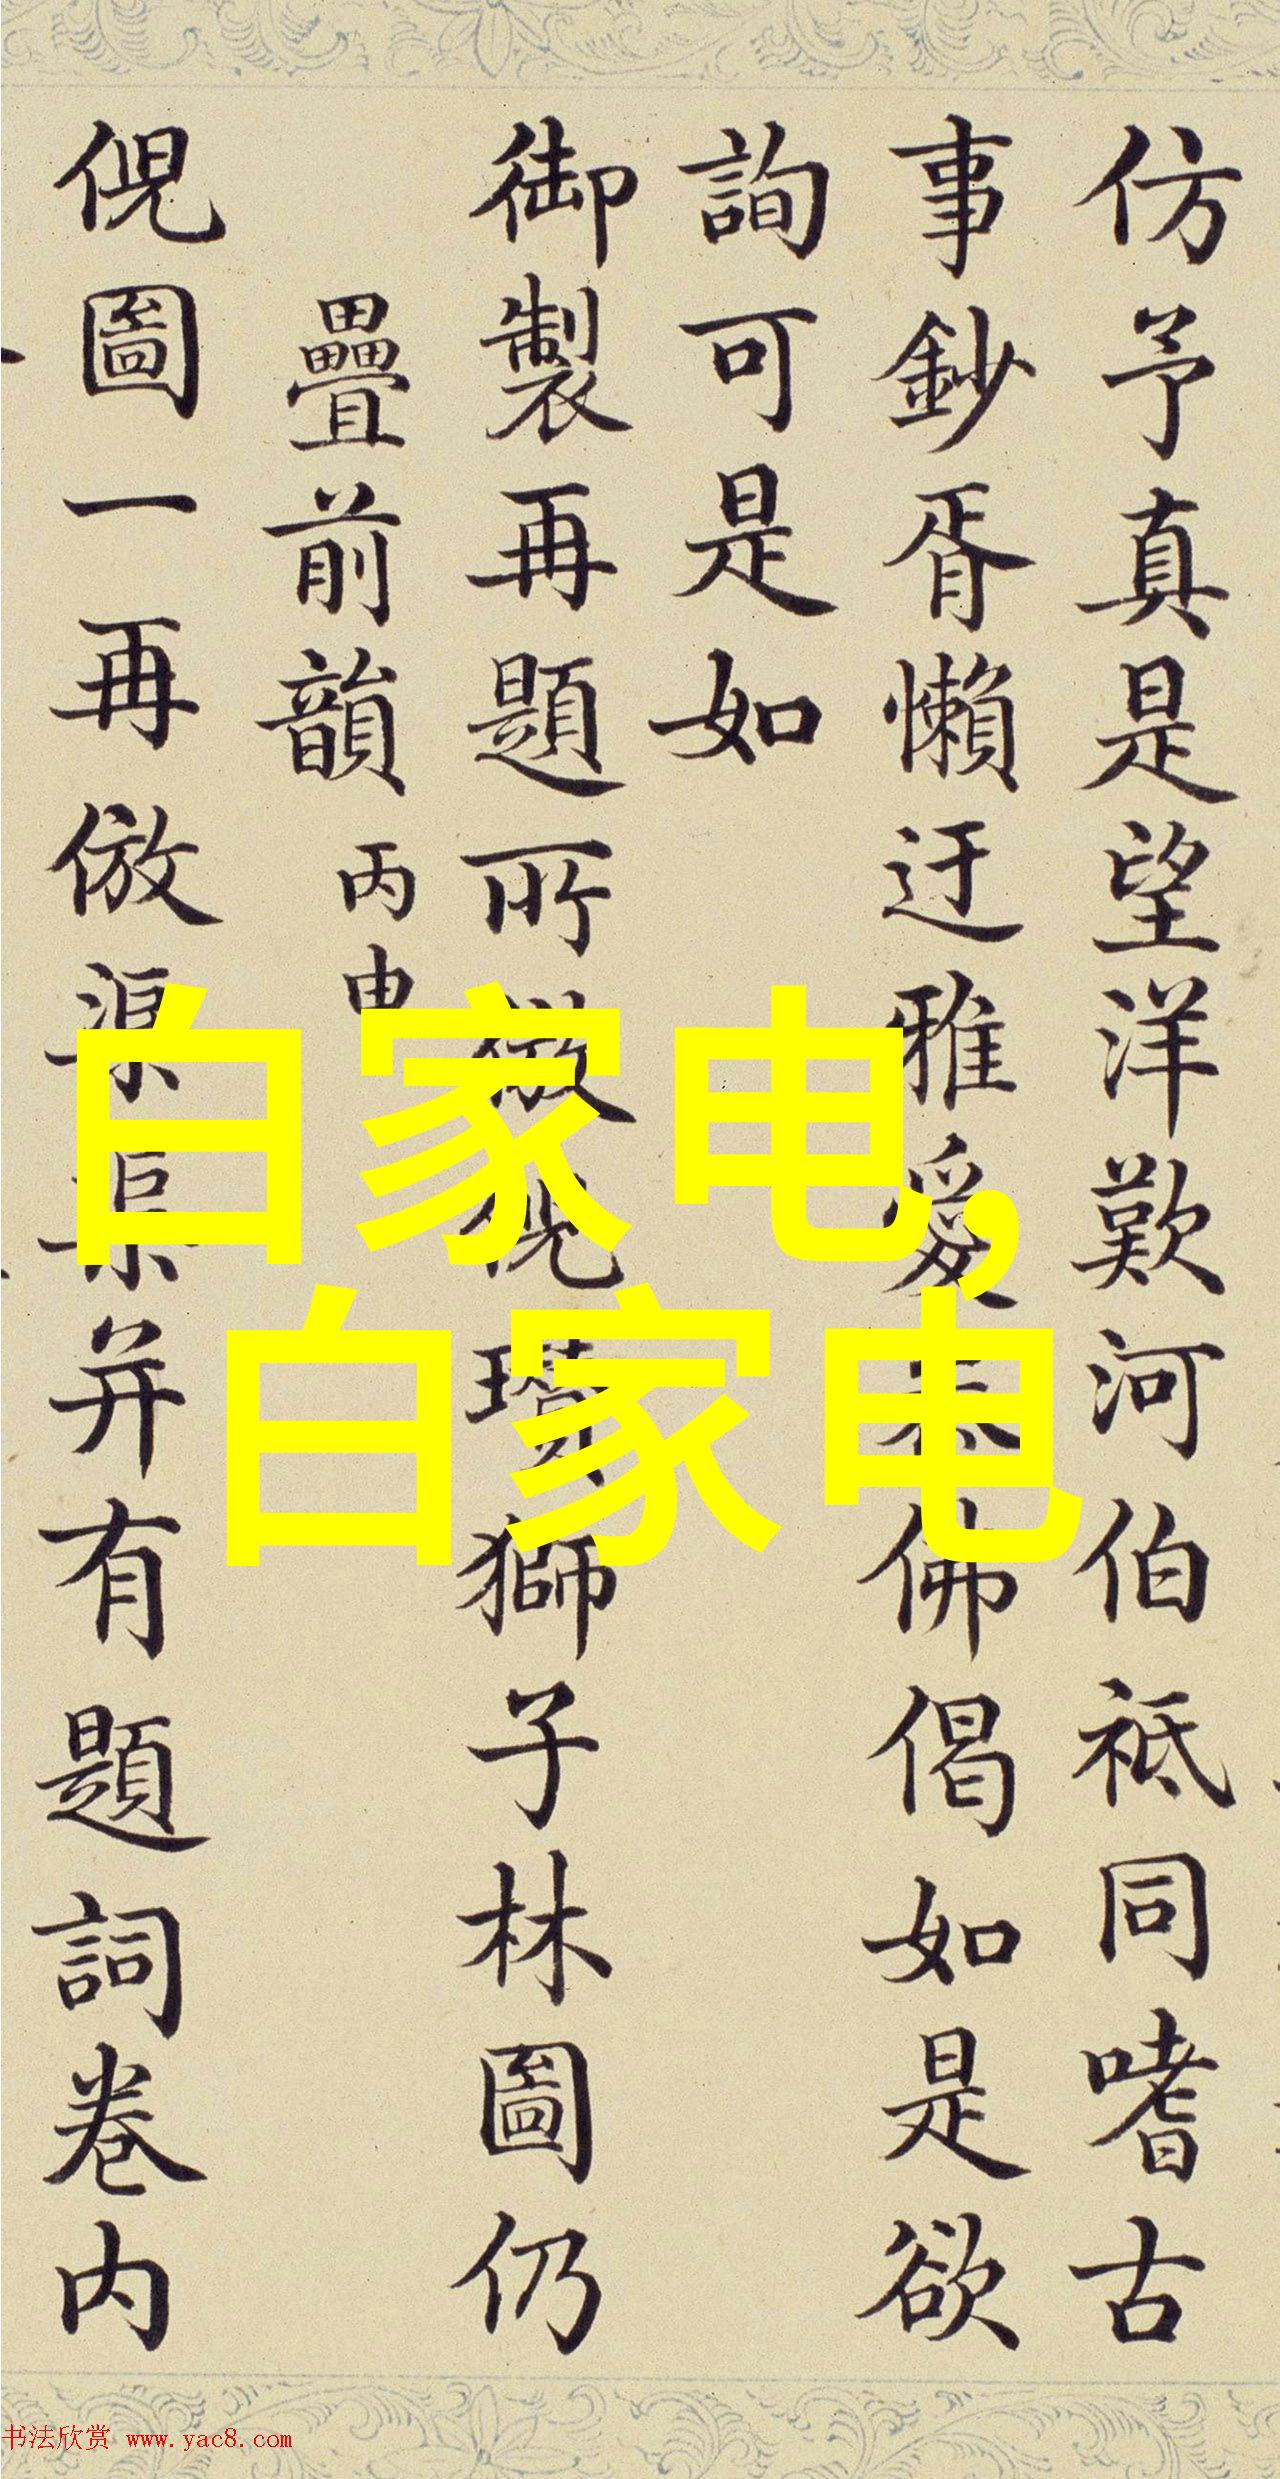 仿予真是望洋歎河伯袛同嗜古
事鈔胥懶迂雅愛佛偈如是欲
詢可是如
御製再題所倣倪瓚獅子林圖仍
疊前韻丙申
倪圖一再倣并有題詞卷内
白家电,
白家电
书法欣赏 www.yac8.com